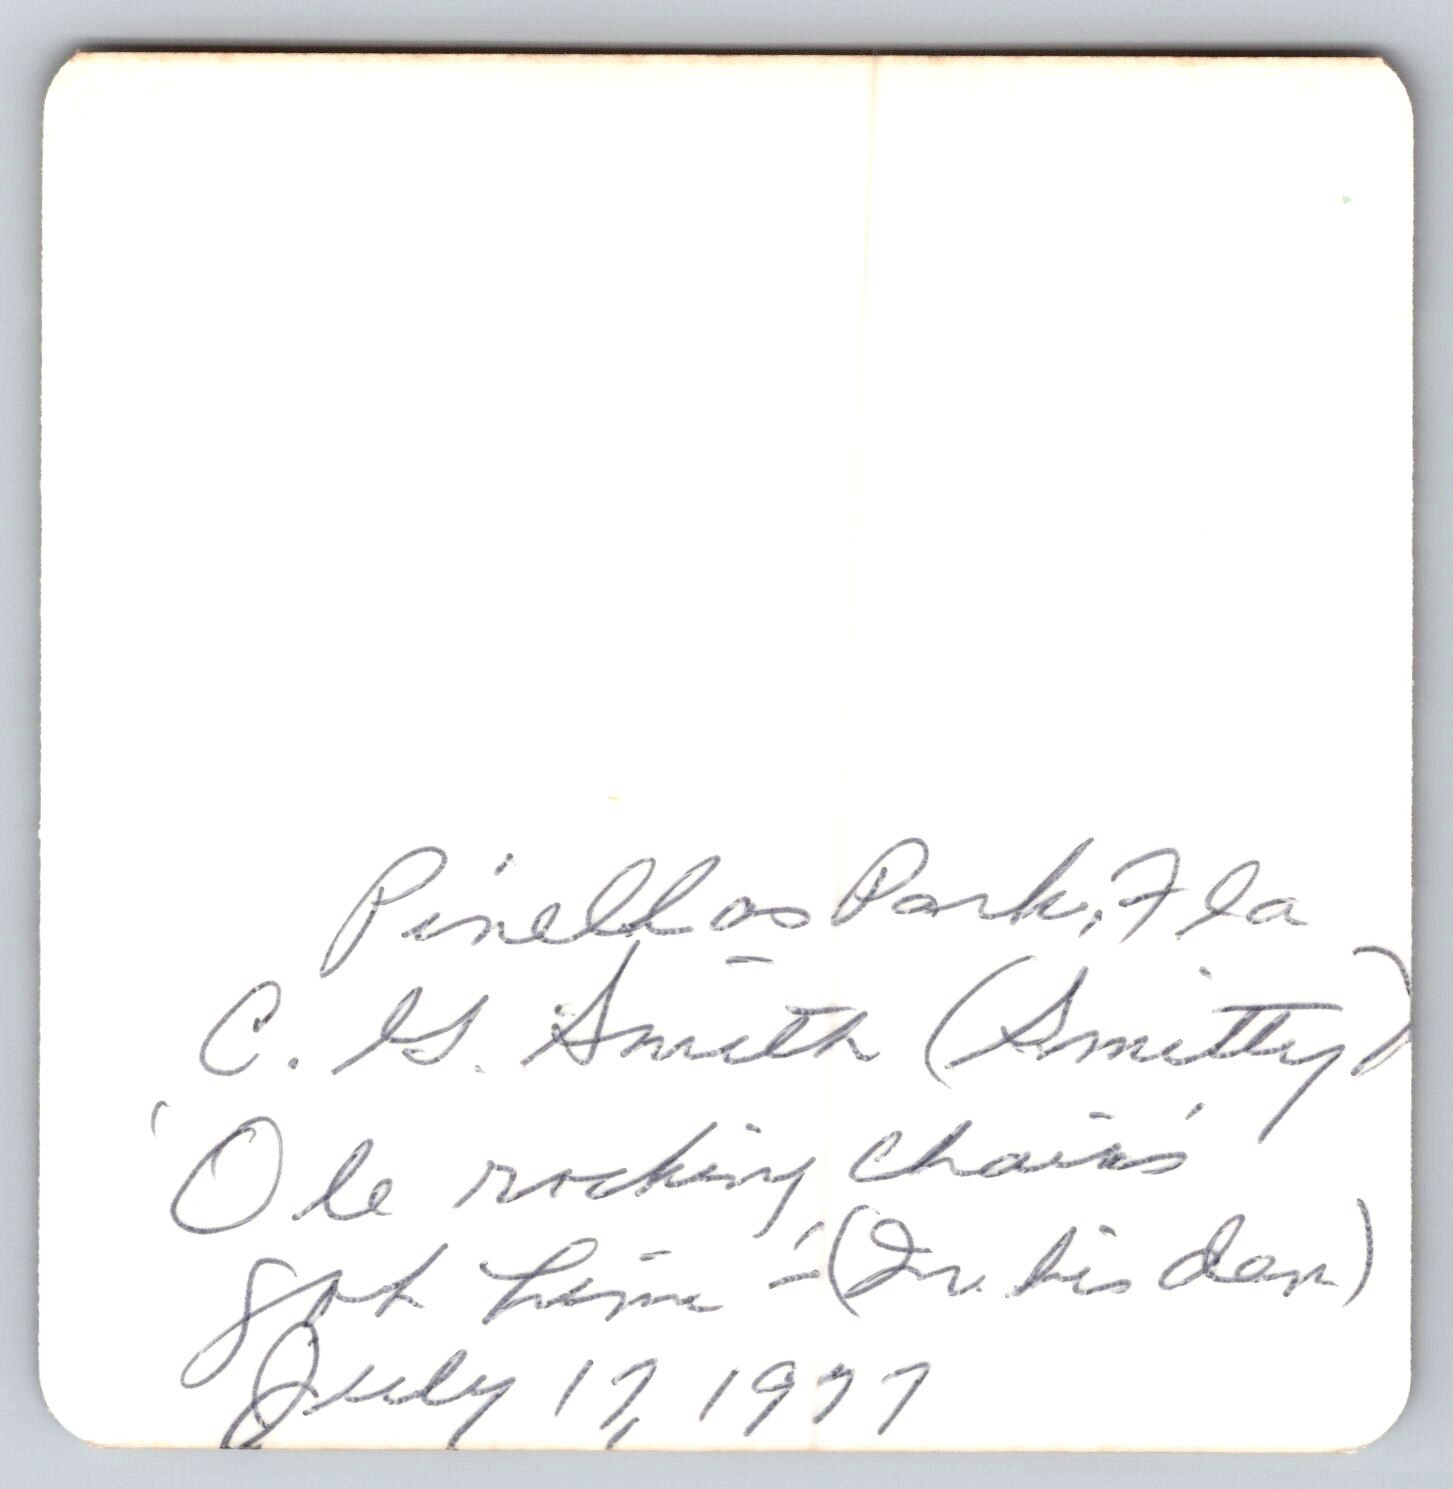 Pinellas Park, Fla
C. G. Smith (Smitty)
'Ole rocking chairs'
got him -'(In his den)
July 17, 1977